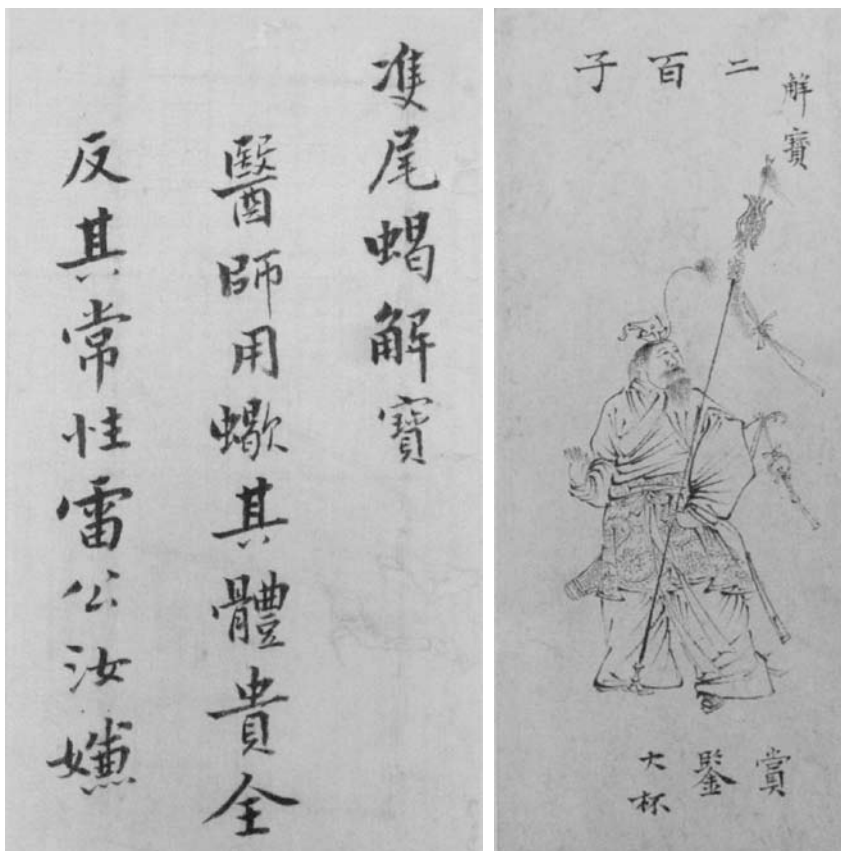 雙尾蝎解寶
醫師用蠍其體貴全
反其常性雷公汝嫌
解寶
二百子
賞鑒大杯